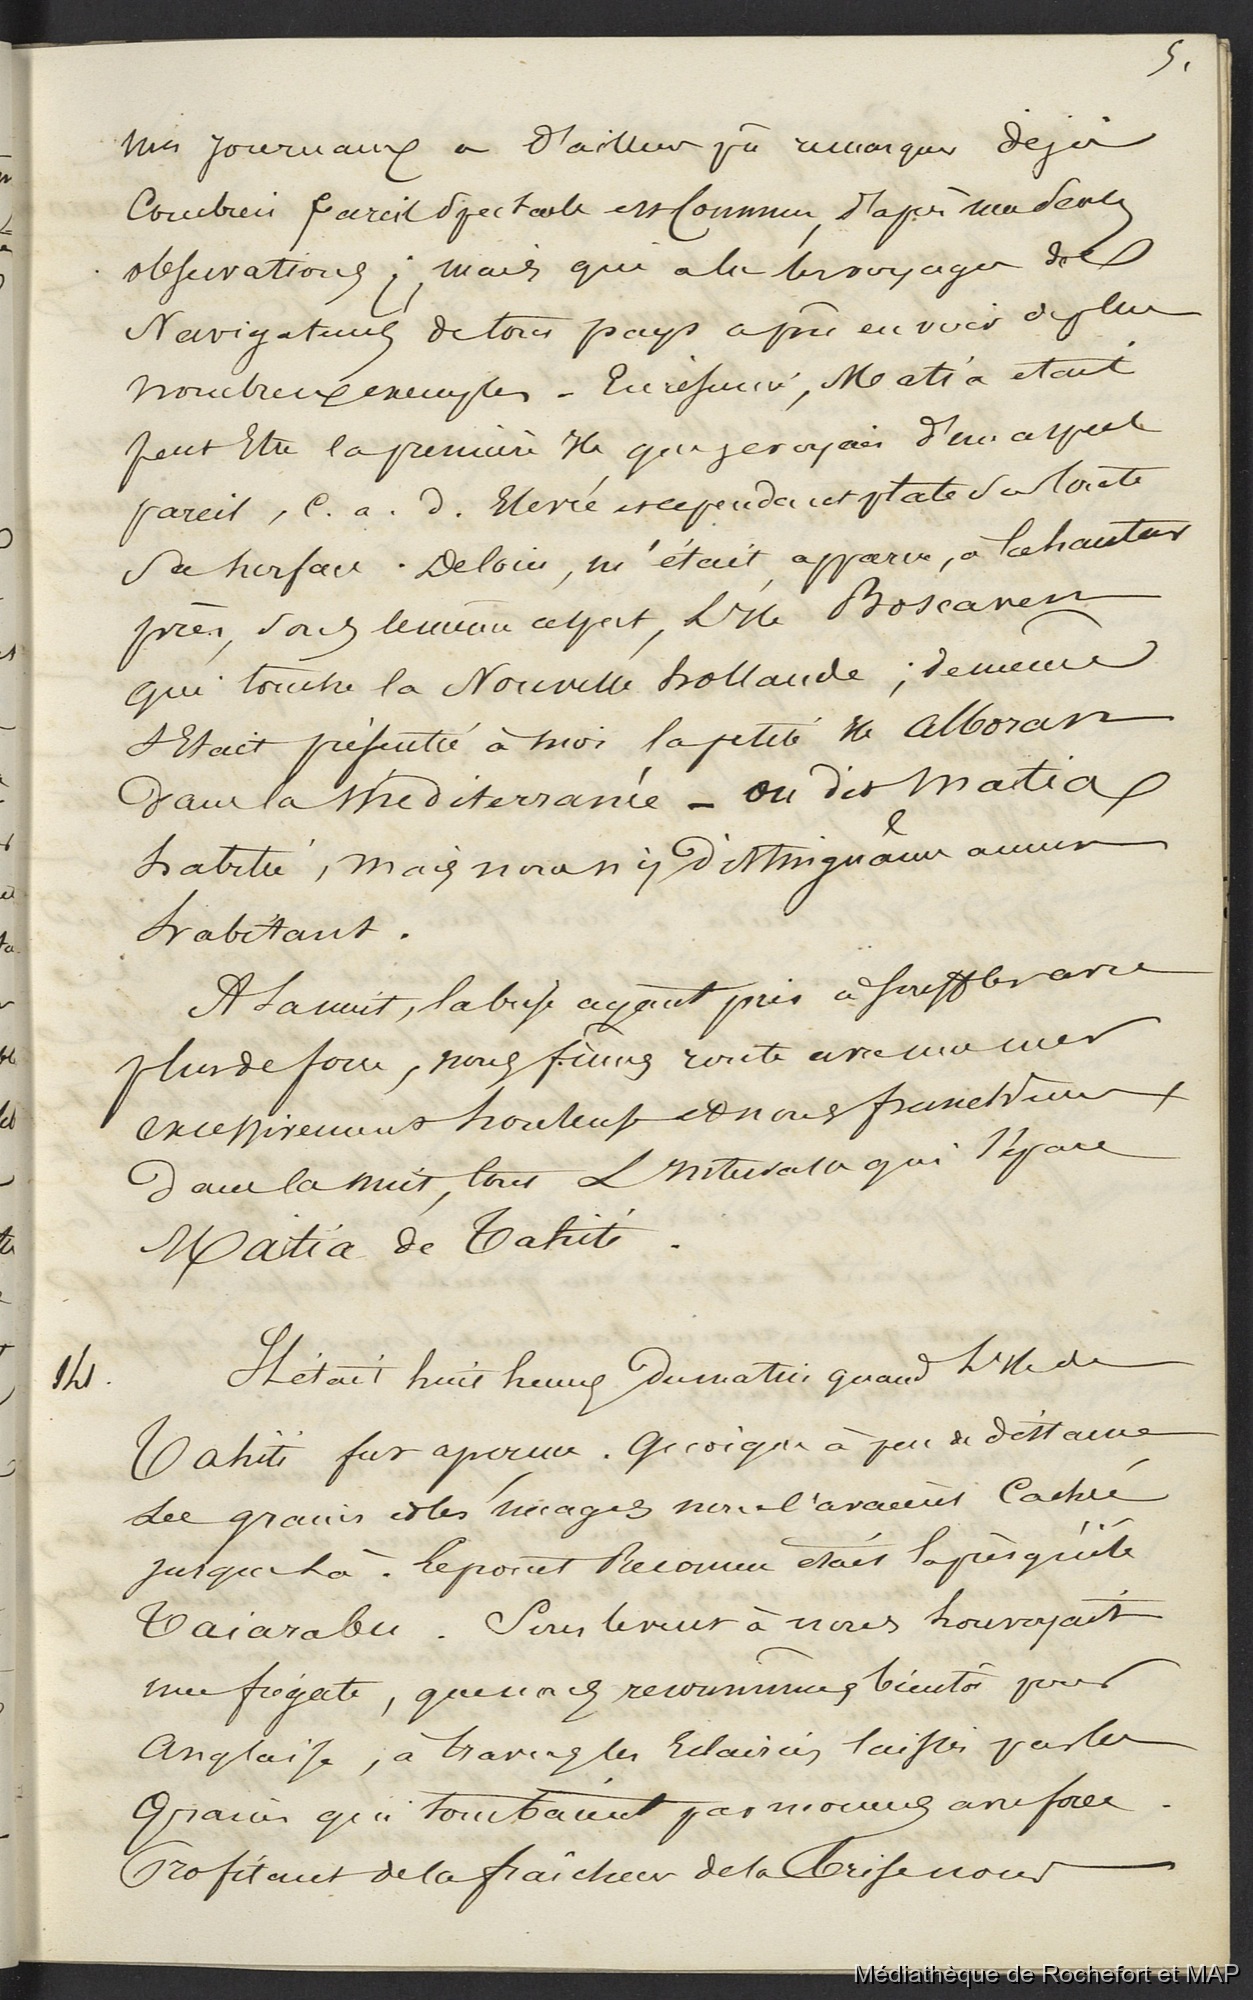 5.
mes journaux a d'ailleurs pû remarquer dejà
Combien pareil Spectacle est Commun, d'après mes Seules
observations ; mais qui a lu les voyages des
Navigateurs de tous pays a pû en voir de plus
nombreux exemples - En résumé, Matia etait
peut Etre la première Ile que je voyais d'un aspect
pareil, C. a. d. Elevée et cependant plate sur toute
Sa surface . De loin, m'était apparue, à la hauteur
près, sous le même aspect, L'Ile Boscaven
qui touche la Nouvelle hollande ; de même
S'Etait présentée à moi la petite Ile Alboran
Dans la Méditerranée - on dit Matia
habitée, mais nous n'y Distinguâmes aucun
habitant .
A La nuit, la brise ayant pris à souffler avec
plus de force, nous fimes route avec une mer
excessivement houleuse et nous franchimes
Dans la nuit, tout L'Intervale qui sépare
Matia de Tahiti .
14. Il était huit heures Du matin quand L'Ile de
Tahiti fut aperçue . Quoique à peu de distance
Les grains et les nuages nous l'avaient Cachée
jusque Là . Le point Reconnu était la presqu'ile
Taiarabu . Sous le vent à nous louvoyait
une frégate, que nous reconnûmes bientôt pour
Anglaise, à travers les Eclaircies laissées par les
Grains qui tombaient par moments avec force .
Profitant de la fraîcheur de la Brise nous
Médiathèque de Rochefort et MAP